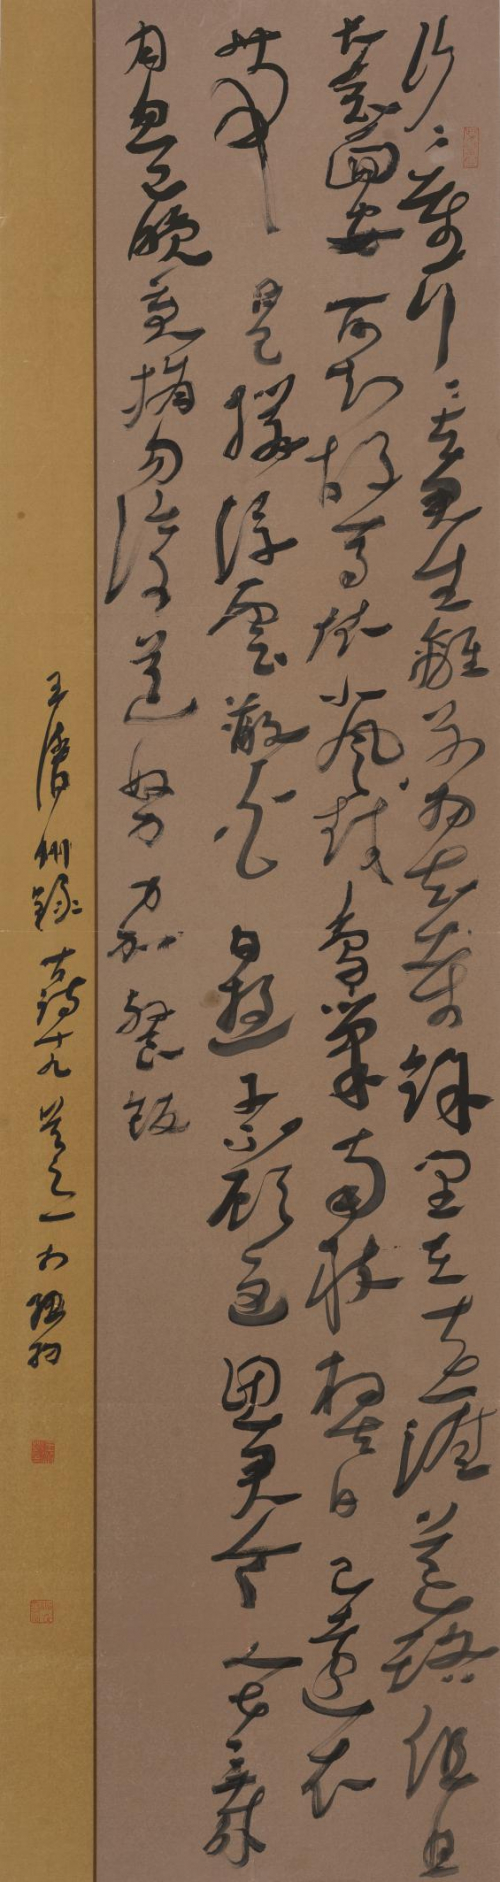 行々重行々与君生離别相去萬餘里在天一涯道路阻且
長會面安可知胡馬依北風越鳥巢南枝相去日已遠衣
帶日已緩浮雲蔽白日遊子不顧返思君令人老歲
月忽已晚棄捐勿復道努力加餐飯
王 州錄古詩十九首之一